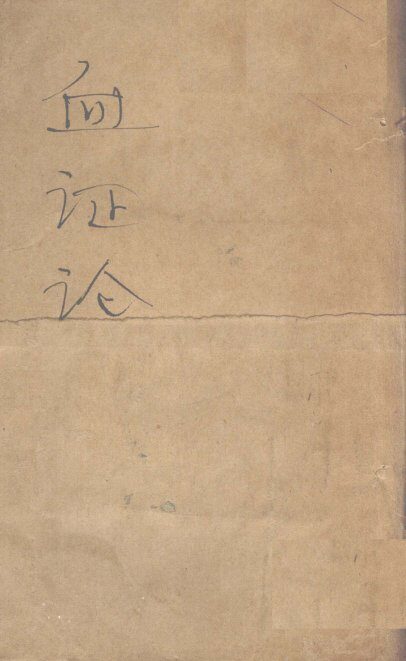 血证论